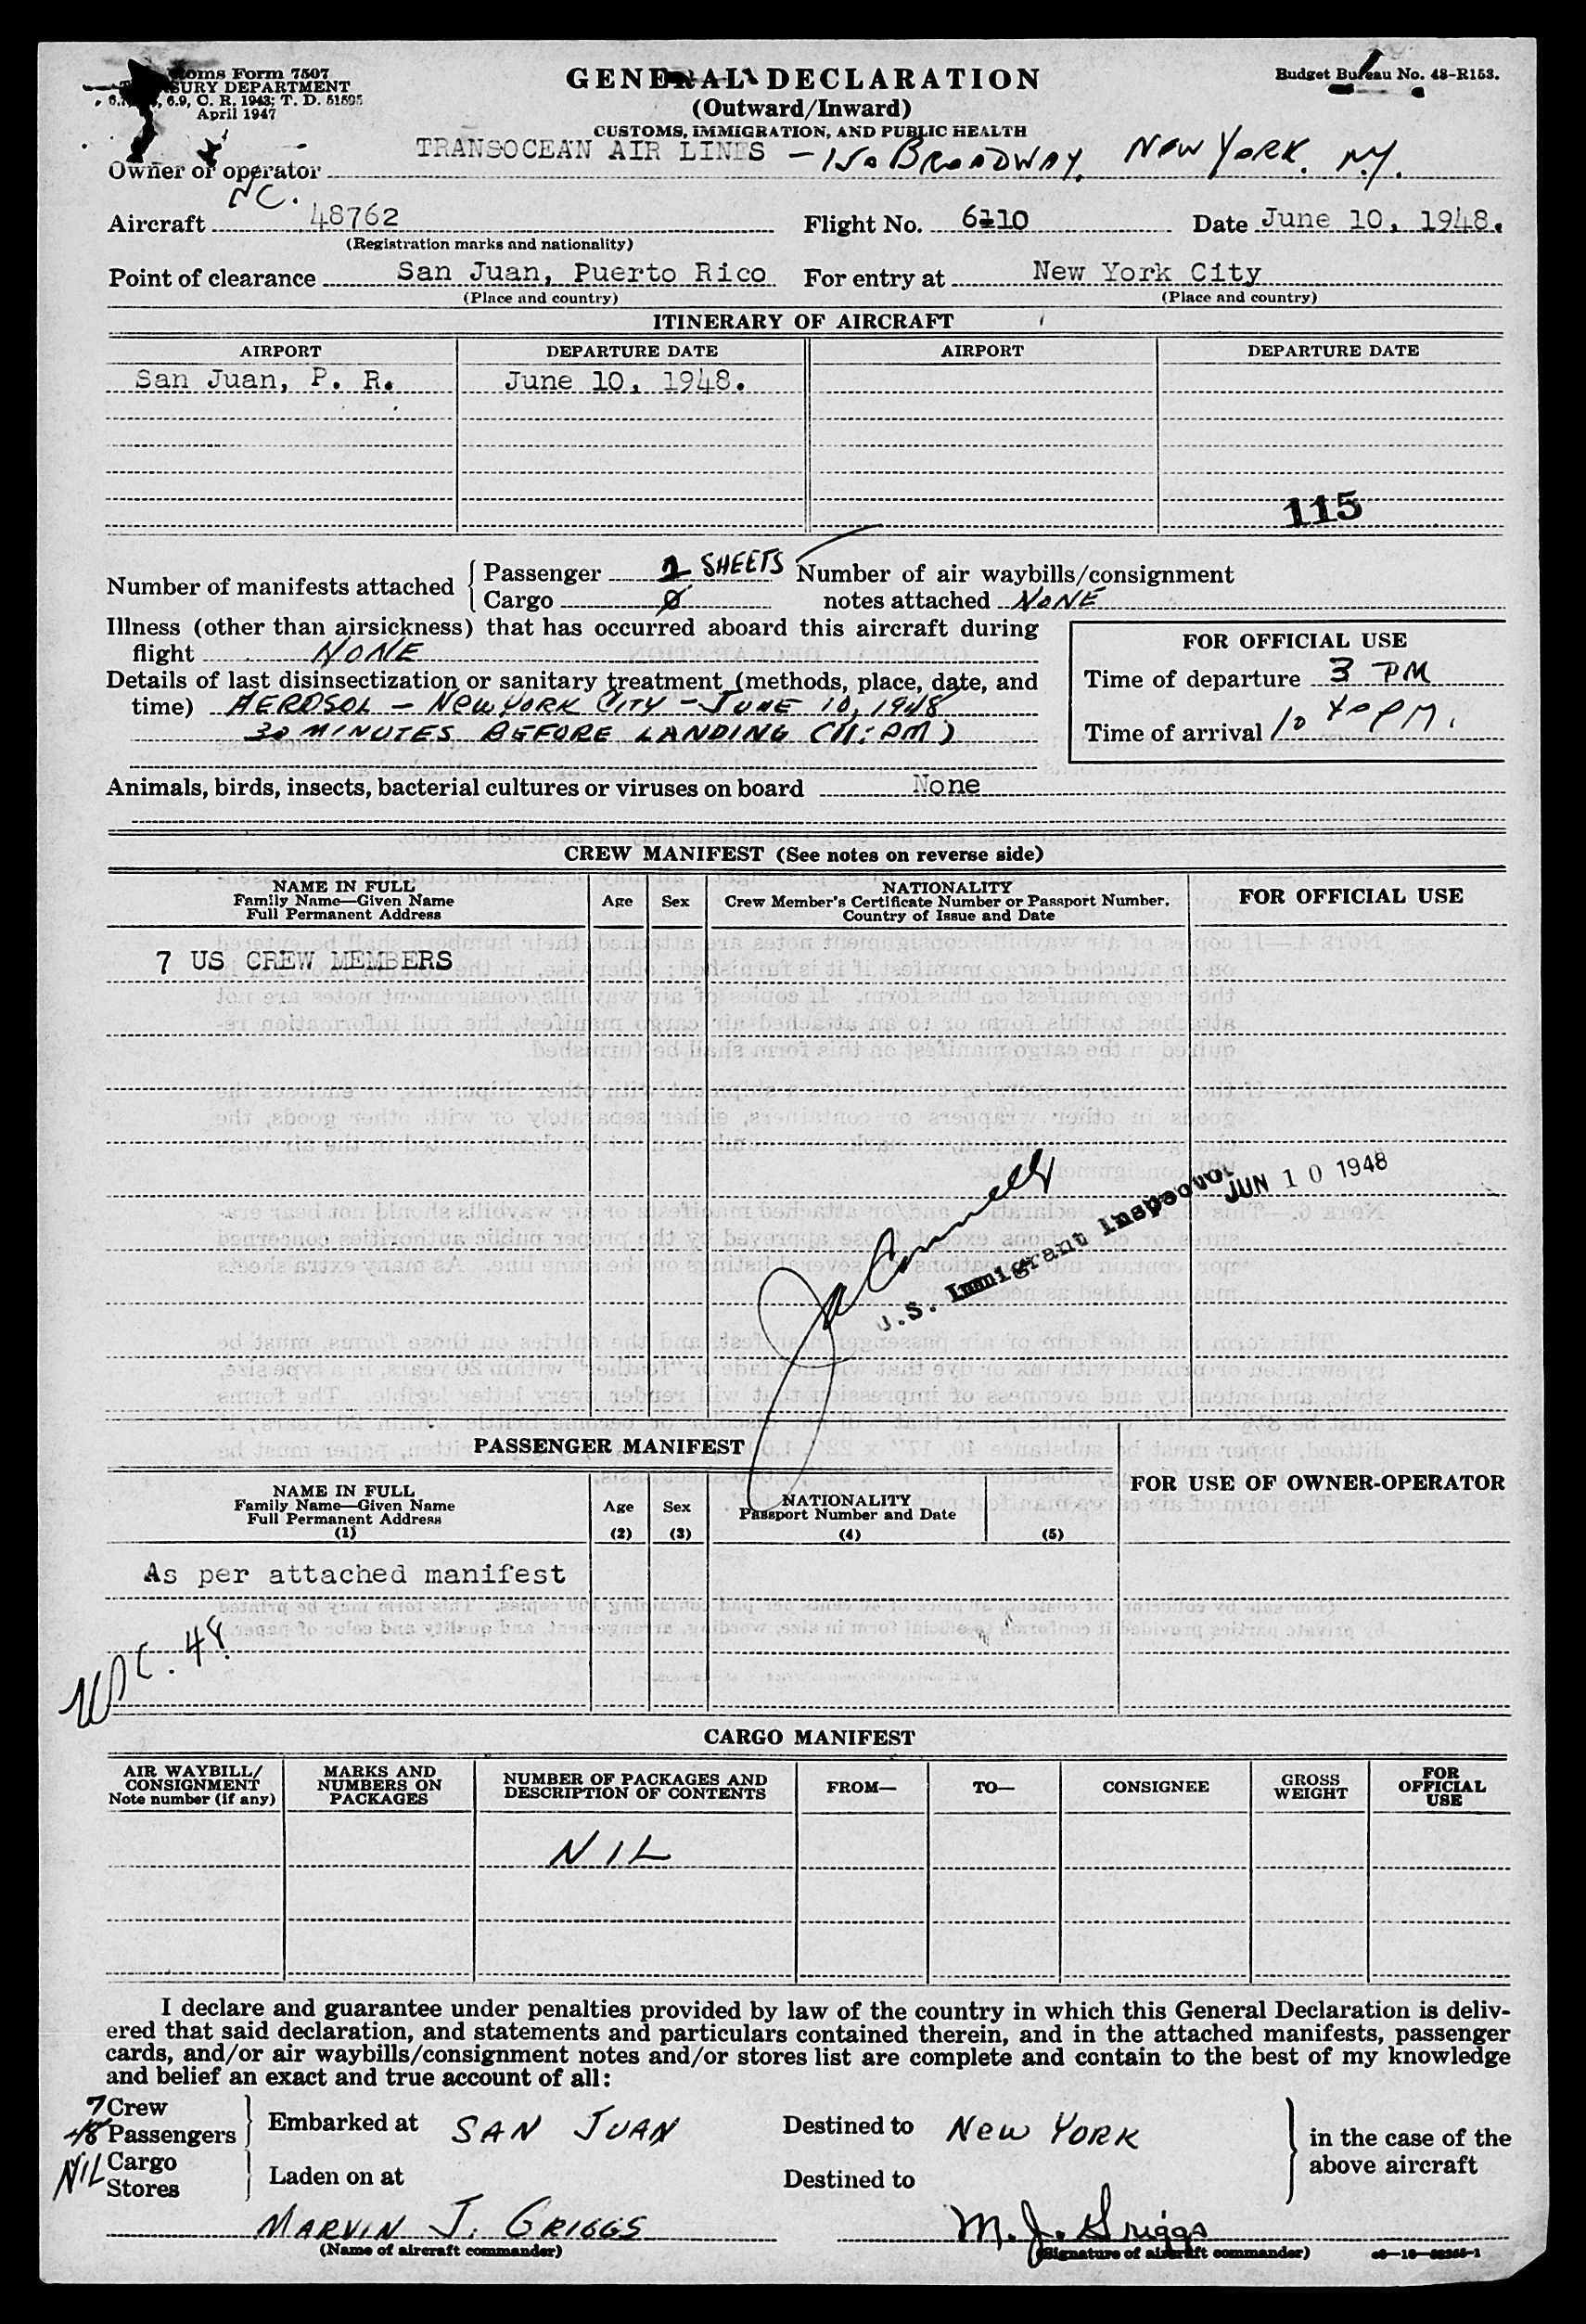 Customs Form 7507
TREASURY DEPARTMENT
6.9, C. R. 1943; T. D. 51595
April 1947
GENERAL DECLARATION
(Outward/Inward)
CUSTOMS, IMMIGRATION, AND PUBLIC HEALTH
Budget Bureau No. 48-R153.
Owner or operator TRANSOCEAN AIR LINES - 150 BROADWAY, NEW YORK. N.Y.
Aircraft NC. 48762 Flight No. 6110 Date June 10, 1948.
(Registration marks and nationality)
Point of clearance San Juan, Puerto Rico For entry at New York City
(Place and country) (Place and country)
ITINERARY OF AIRCRAFT
AIRPORT DEPARTURE DATE AIRPORT DEPARTURE DATE
San Juan, P. R. June 10, 1948.
115
Number of manifests attached { Passenger 2 SHEETS Number of air waybills/consignment
Cargo 0 notes attached NONE
Illness (other than airsickness) that has occurred aboard this aircraft during
flight NONE
Details of last disinsectization or sanitary treatment (methods, place, date, and
time) AEROSOL - NEW YORK CITY - JUNE 10, 1948
30 MINUTES BEFORE LANDING (11: PM)
FOR OFFICIAL USE
Time of departure 3 PM
Time of arrival 10 40 PM.
Animals, birds, insects, bacterial cultures or viruses on board None
CREW MANIFEST (See notes on reverse side)
NAME IN FULL
Family Name—Given Name
Full Permanent Address
Age
Sex
NATIONALITY
Crew Member's Certificate Number or Passport Number,
Country of Issue and Date
FOR OFFICIAL USE
7 US CREW MEMBERS
U.S. Immigrant Inspector
JUN 10 1948
PASSENGER MANIFEST
FOR USE OF OWNER-OPERATOR
NAME IN FULL
Family Name—Given Name
Full Permanent Address
(1)
Age
(2)
Sex
(3)
NATIONALITY
Passport Number and Date
(4) (5)
As per attached manifest
48
CARGO MANIFEST
AIR WAYBILL/
CONSIGNMENT
Note number (if any)
MARKS AND
NUMBERS ON
PACKAGES
NUMBER OF PACKAGES AND
DESCRIPTION OF CONTENTS
FROM—
TO—
CONSIGNEE
GROSS
WEIGHT
FOR
OFFICIAL
USE
NIL
I declare and guarantee under penalties provided by law of the country in which this General Declaration is deliv-
ered that said declaration, and statements and particulars contained therein, and in the attached manifests, passenger
cards, and/or air waybills/consignment notes and/or stores list are complete and contain to the best of my knowledge
and belief an exact and true account of all:
7 Crew
48 Passengers } Embarked at SAN JUAN Destined to NEW YORK
NIL Cargo
Stores } Laden on at Destined to
} in the case of the
above aircraft
MARVIN J. GRIGGS M. J. Griggs
(Name of aircraft commander) (Signature of aircraft commander)